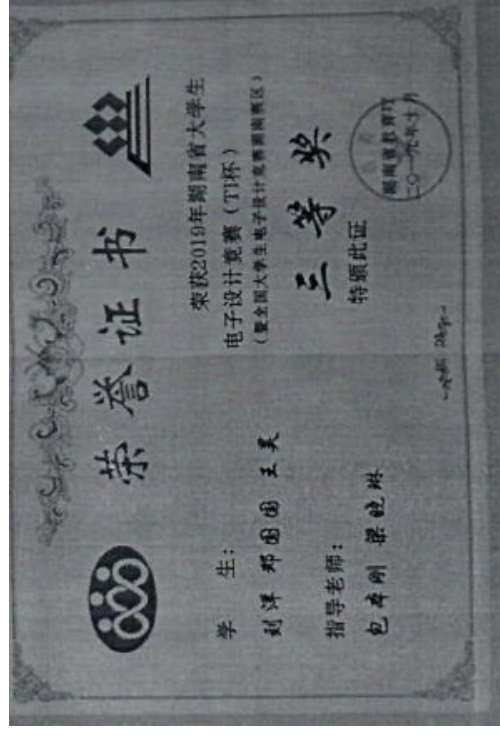 荣誉证书
学 生：
刘洋 邓国国 王昊
指导老师：
包本刚 梁晓琳
荣获2019年湖南省大学生
电子设计竞赛（TI杯）
（暨全国大学生电子设计竞赛湖南赛区）
三等奖
特颁此证
湖南省教育厅
二〇一九年十月